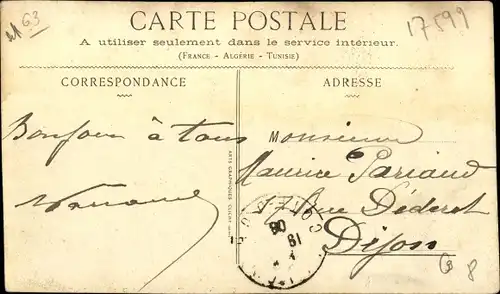 63
17599
CARTE POSTALE
A utiliser seulement dans le service intérieur.
(FRANCE - ALGÉRIE - TUNISIE)
CORRESPONDANCE
ADRESSE
Bonjour à tous
Monsieur
Maurice Pariaud
17 Rue Diderot
Dijon
ARTS GRAPHIQUES
18
08
8